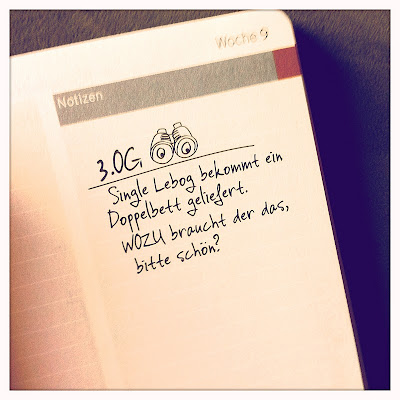 Woche 9
Notizen
3.OG,
Single Lebog bekommt ein
Doppelbett geliefert.
WOZU braucht der das,
bitte schön?